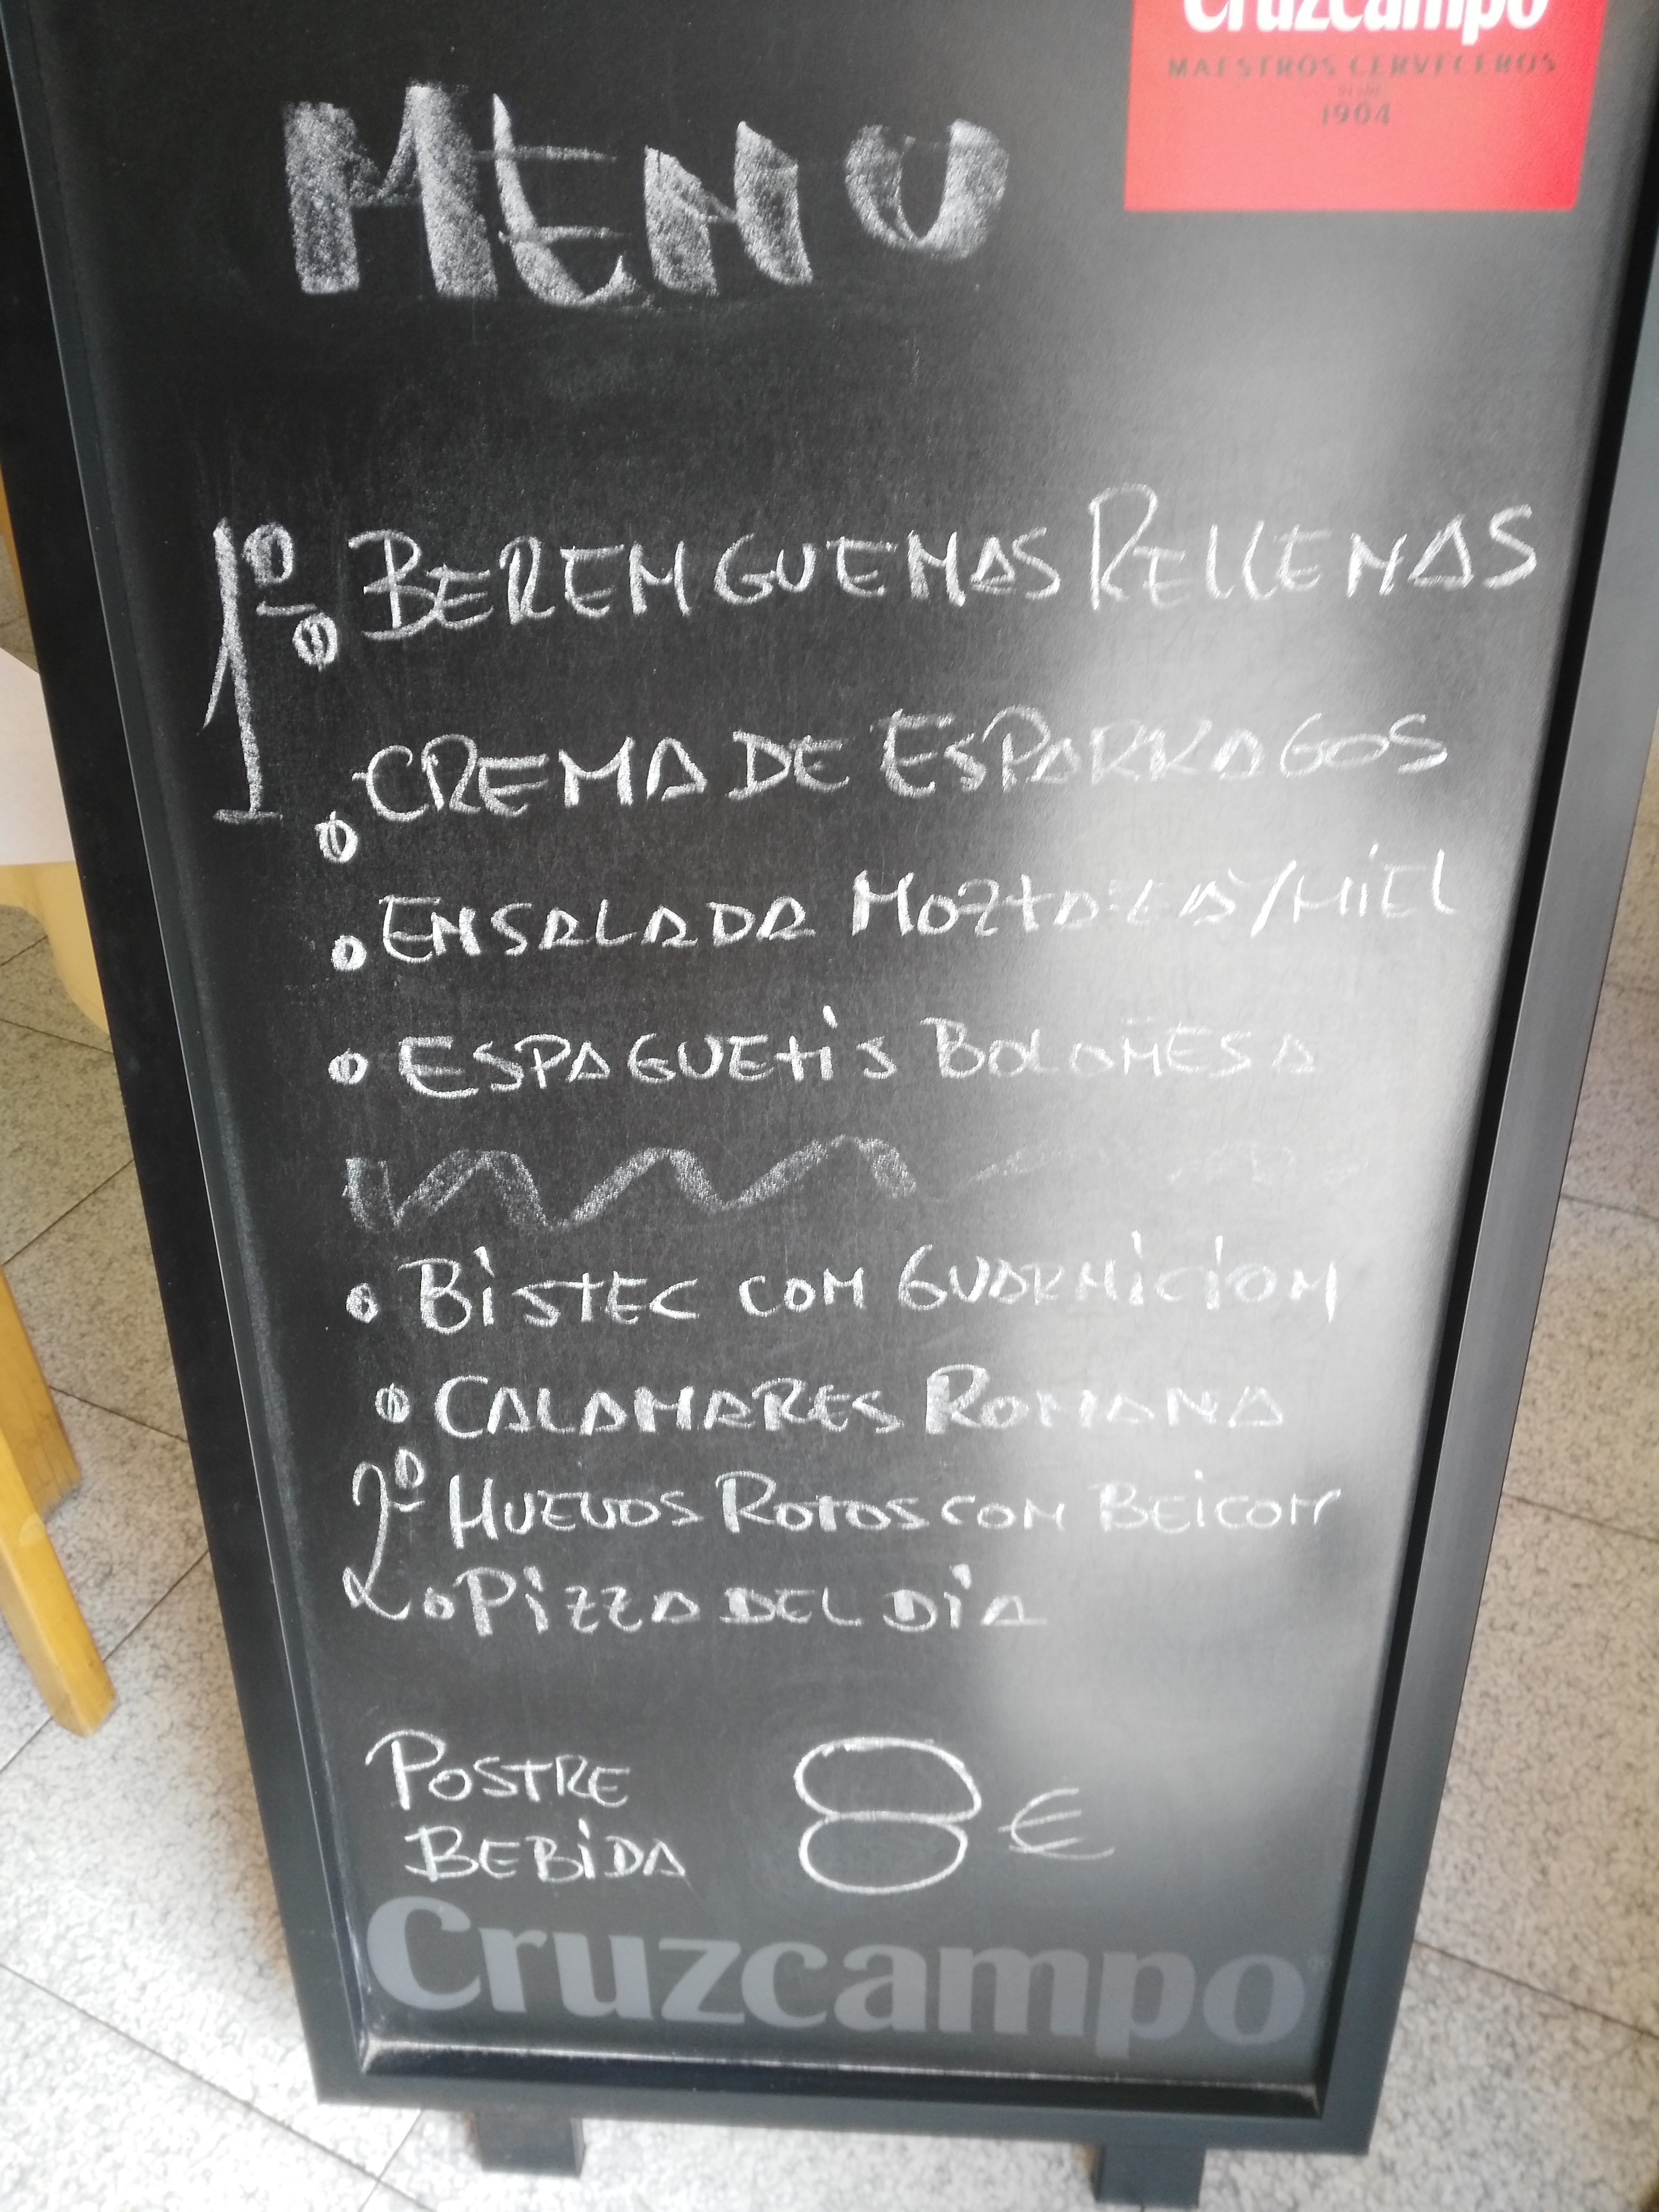 Cruzcampo
MAESTROS CERVECEROS
DESDE
1904
MENU
1º BEREMGUEMAS RELLENAS
CREMA DE ESPARRAGOS
ENSALADA MOZTAZA Y/MIEL
ESPAGUETIS BOLOÑESA
BISTEC COM GUARNICIOM
CALAMARES ROMANA
2º HUEVOS ROTOS COM BEICOM
PIZZA DEL DIA
POSTRE
BEBIDA 8€
Cruzcampo